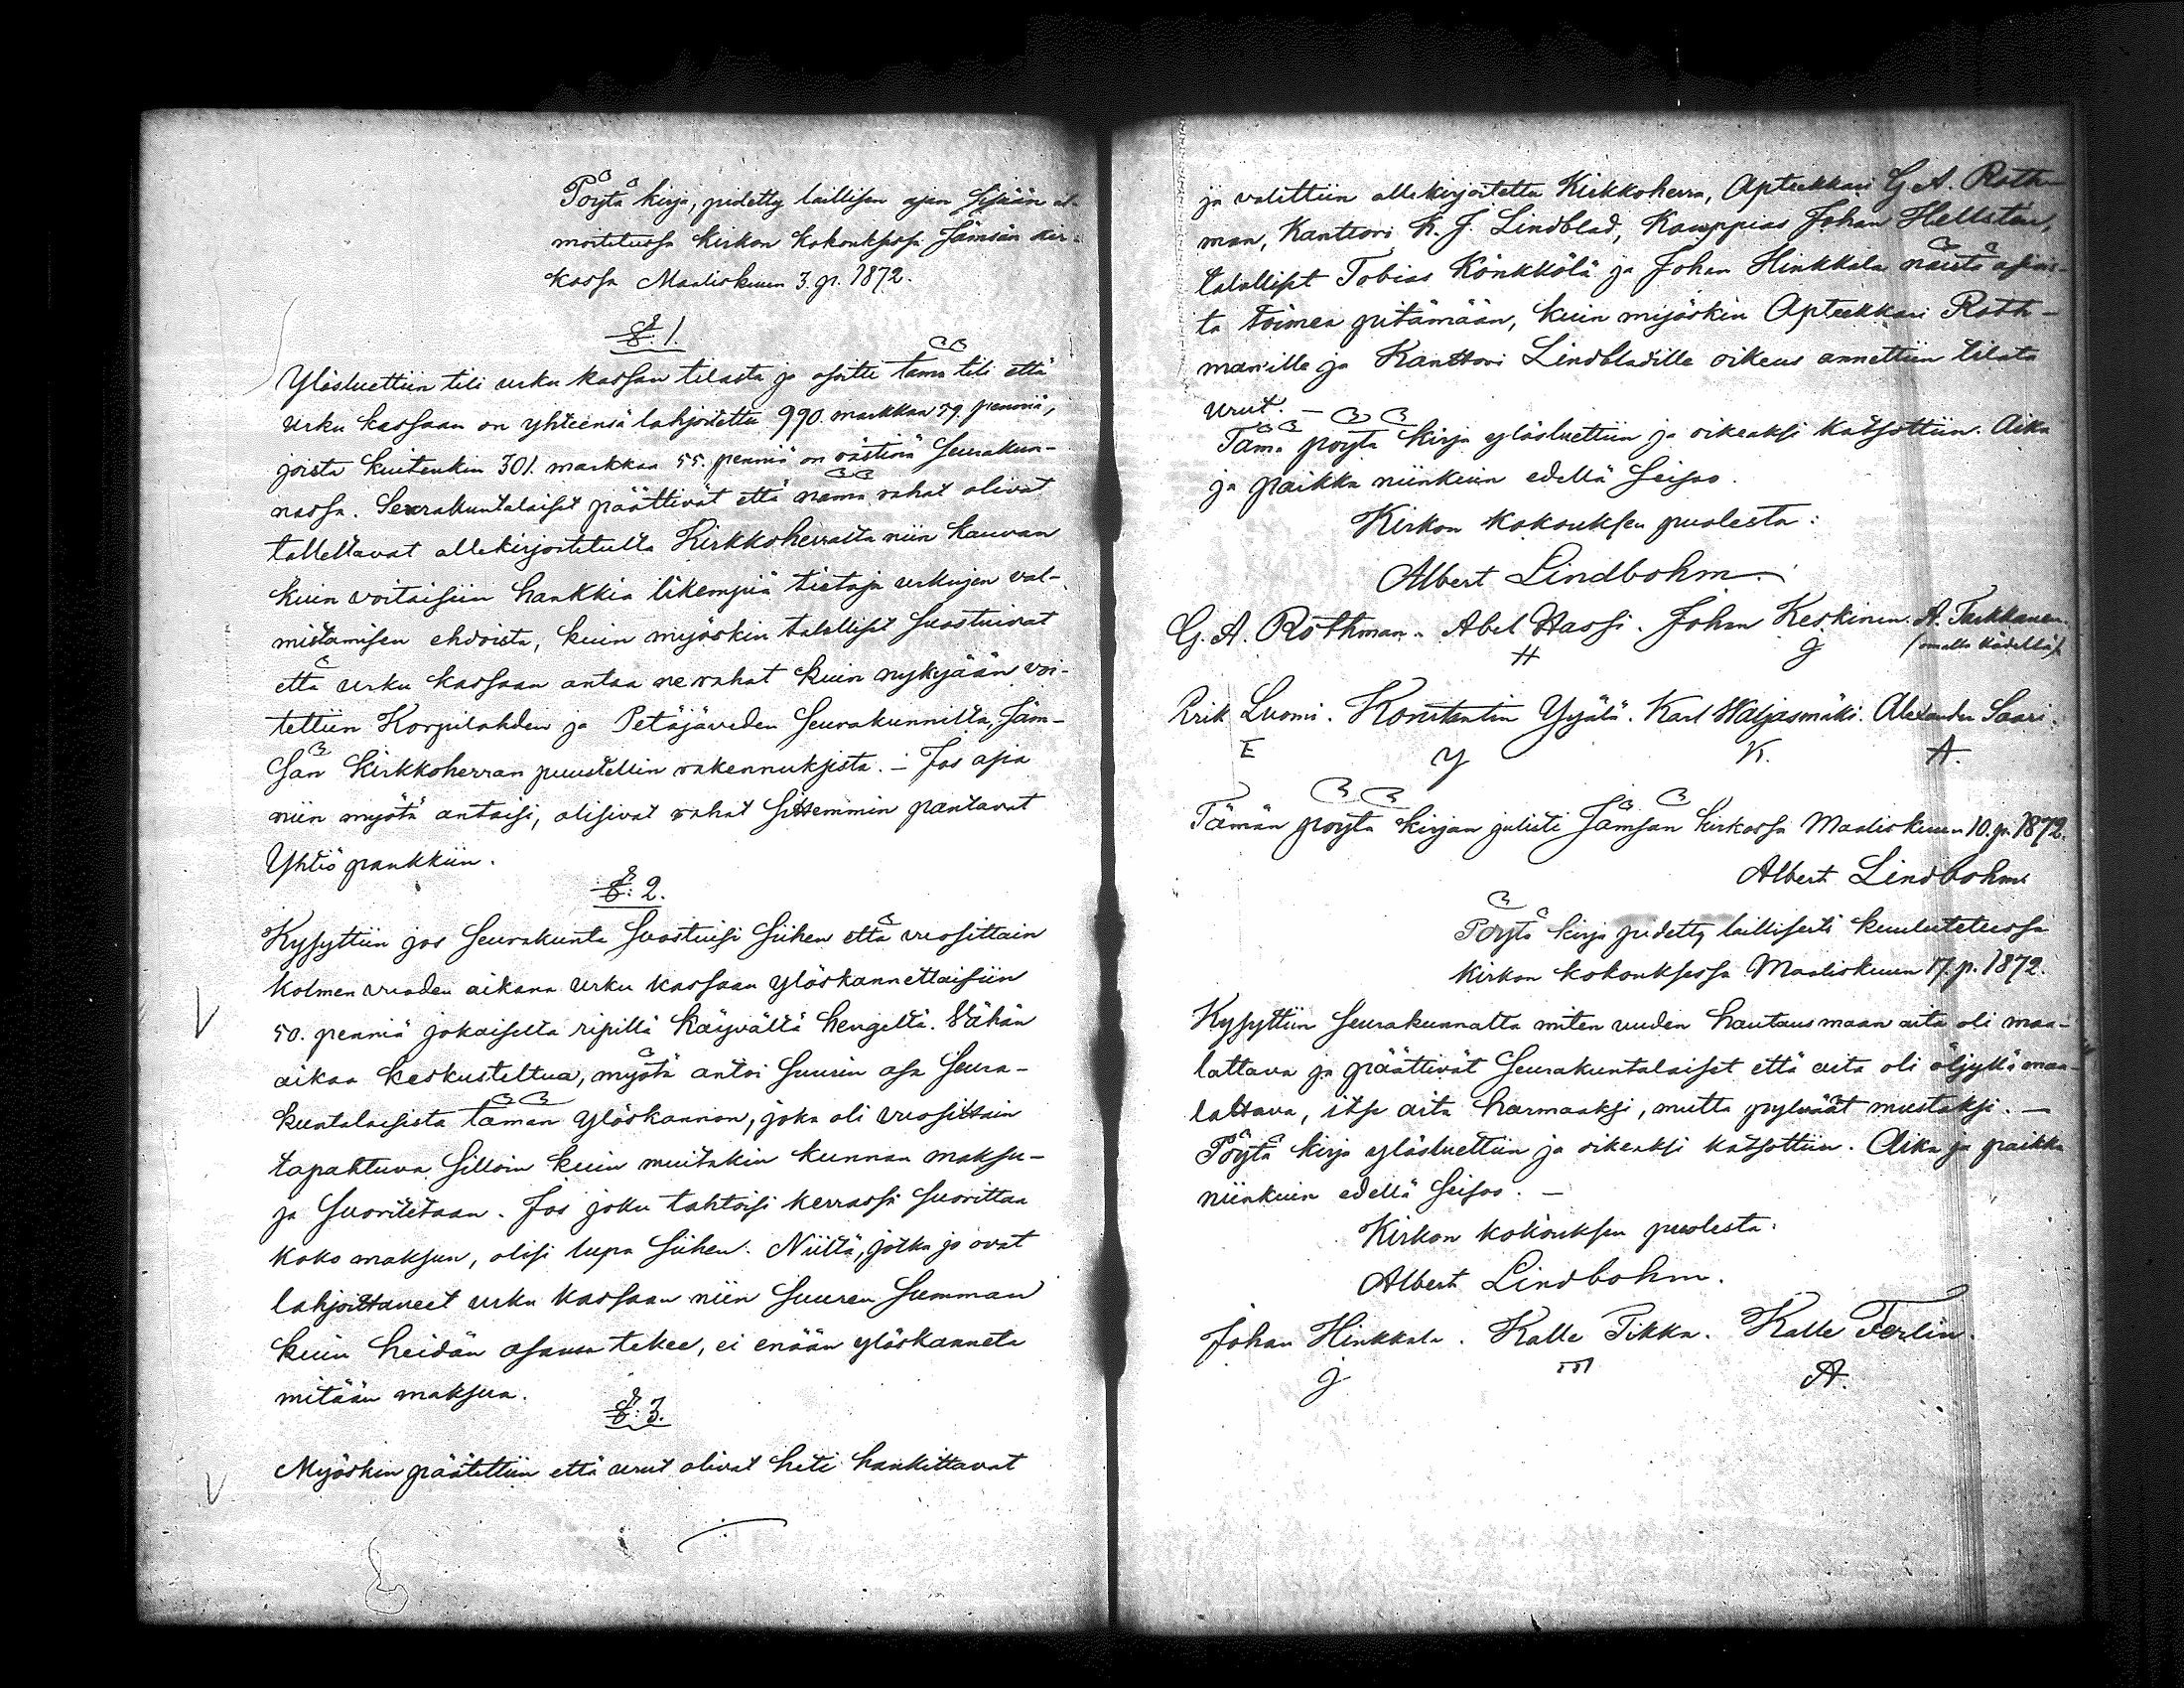 Pöytä kirja, pidetty laillisen ajan sisään il-
moitetussa kirkon kokouksessa Jämsän kir-
kossa Maaliskuun 3. p. 1872.
§. 1.
Ylösluettiin tili urku kassan tilasta ja osoitti tämä tili että
urku kassaan on yhteensä lahjoitettu 990. markkaa 59. penniä,
joista kuitenkin 301. markkaa 55. penniä on rästinä seurakun-
nassa. Seurakuntalaiset päättivät että nämä rahat olivat
tallettavat allekirjoitetulta Kirkkoherralta niin kauvan
kuin voitaisiin hankkia likempiä tietoja urkujen val-
mistamisen ehdoista, kuin myöskin talolliset suostuivat
että urku kassaan antaa ne rahat kuin nykyjään voi-
tettiin Korpilahden ja Petäjäveden seurakunnilta, Jäm-
sän Kirkkoherran puustellin rakennuksista. – Jos asia
niin myötä antaisi, olisivat rahat sittemmin pantavat
Yhtiö pankkiin.
§: 2.
Kysyttiin jos seurakunta suostuisi siihen että vuosittain
kolmen vuoden aikana urku kassaan ylöskannettaisiin
50. penniä jokaiselta ripillä käyvältä hengeltä. Vähän
aikaa keskusteltua, myötä antoi suurin osa seura-
kuntalaisista tämän ylöskannon, joka oli vuosittain
tapahtuva silloin kuin muitakin kunnan maksu-
ja suoritetaan. Jos joku tahtoisi kerrassa suorittaa
koko maksun, olisi lupa siihen. Niiltä, jotka jo ovat
lahjoittaneet urku kassaan niin suuren summan
kuin heidän osansa tekee, ei enään ylöskanneta
mitään maksua.
§: 3.
Myöskin päätettiin että urut olivat heti hankittavat
ja valittiin allekirjoitettu Kirkkoherra, Apteekkari G. A. Roth-
man, Kanttori K. J. Lindblad, Kauppias Johan Hellstén,
talolliset Tobias Könkkölä ja Johan Hinkkala näistä asiois-
ta toimea pitämään, kuin myöskin Apteekkari Roth-
man'ille ja Kanttori Lindblad'ille oikeus annettiin tilata
urut. –
Tämä pöytä kirja ylösluettiin ja oikeaksi katsottiin. Aika
ja paikka niinkuin edellä seisoo.
Kirkon kokouksen puolesta:
Albert Lindbohm.
G. A. Rothman. Abel Hassi. Johan Keskinen. A. Tarkkanen.
H J (omalla kädellä)
Erik Luomi. Konstantin Yijälä. Karl Waljasmäki. Alexander Saari.
E Y K. A.
Tämän pöytä kirjan julisti Jämsän kirkossa Maaliskuun 10. p. 1872.
Albert Lindbohm
Pöytä kirja pidetty laillisesti kuulutetussa
kirkon kokouksessa Maaliskuun 17. p. 1872.
Kysyttiin seurakunnalta miten uuden hautausmaan aita oli maa-
lattava ja päättivät seurakuntalaiset että aita oli öljyllä maa-
lattava, itse aita harmaaksi, mutta pylväät mustaksi. –
Pöytä kirja ylösluettiin ja oikeaksi katsottiin. Aika ja paikka
niinkuin edellä seisoo. –
Kirkon kokouksen puolesta:
Albert Lindbohm.
Johan Hinkkala. Kalle Tikka. Kalle Ferlin.
J A.